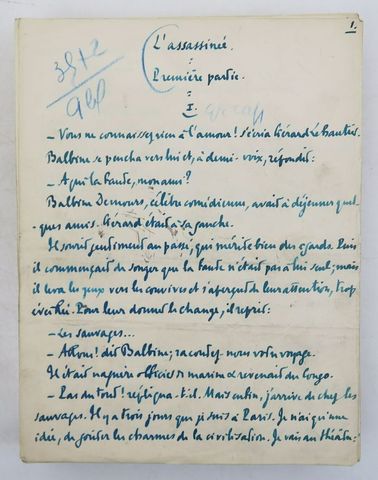 1.
L'assassinée.
Première partie.
I
— Vous ne connaissez rien à l'amour ! s'écria Gérard
Balbine se pencha vers lui et, à demi-voix, répondit :
— A qui la faute, mon ami ?
Balbine Demours, célèbre comédienne, avait à déjeuner quel-
ques amis. Gérard était à sa gauche.
Il sourit gentiment au passé, qui mérite bien des égards. Puis
il commençait de songer que la faute n'était pas à lui seul ; mais
il leva les yeux vers les convives et s'aperçut de leur attention, trop
éveillée. Pour leur donner le change, il reprit :
— Les sauvages...
— Allons ! dit Balbine ; racontez-nous votre voyage.
Il était naguère officier de marine et revenait du Congo.
— Pas du tout ! répliqua-t-il. Mais enfin, j'arrive de chez les
sauvages. Il y a trois jours que je suis à Paris. Je n'ai qu'une
idée, de goûter les charmes de la civilisation. Je vais au théâtre :